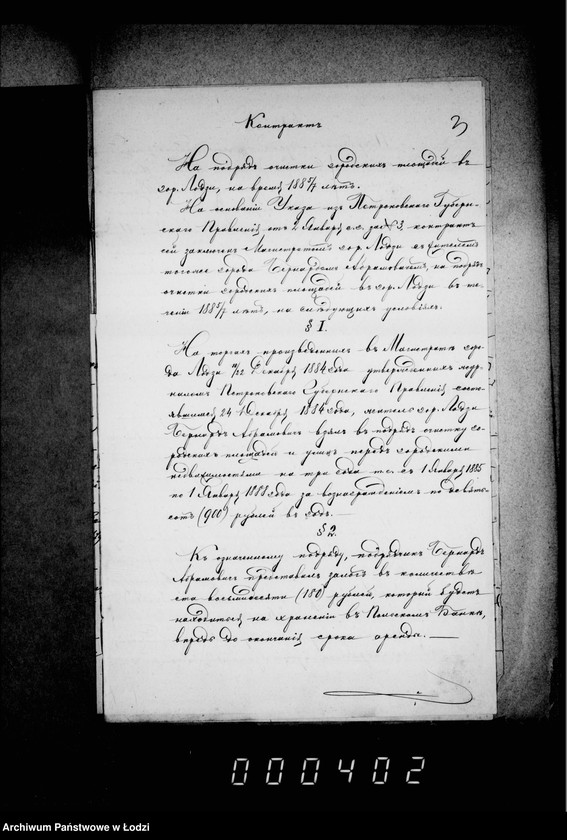 Контрактъ
3
На подрядъ очистки городскихъ площадей въ
гор. Лодзи, на время 1885/7 лѣтъ.
На основаніи Указа изъ Петроковскаго Губерн-
скаго Правленія отъ 2 Января с.г. за № 3, контрактъ
сей заключенъ Магистратомъ гор. Лодзи съ жителемъ
тогоже города Бернардомъ Абрамовичемъ, на подрядъ
очистки городскихъ площадей въ гор. Лодзи въ те-
ченіи 1885/7 лѣтъ, на слѣдующихъ условіяхъ.
§ I.
На торгахъ произведенныхъ въ Магистратѣ горо-
да Лодзи Декабря 1884 года утвержденныхъ жур-
наломъ Петроковскаго Губернскаго Правленія состо-
явшимся 24 Декабря 1884 года, житель гор. Лодзи
Бернардъ Абрамовичъ взялъ въ подрядъ очистку го-
родскихъ площадей и улицъ передъ городскими
недвижимостями на три года т.е. съ 1 Января 1885
по 1 Января 1888 года за вознагражденіемъ по девять-
сотъ (900) рублей въ годъ. —
§ 2.
Къ означенному подряду, подрядчикъ Бернардъ
Абрамовичъ представилъ залогъ въ количествѣ
ста восьмидесяти (180) рублей, который будетъ
находиться на храненіи въ Польскомъ Банкѣ,
впредь до окончанія срока аренды. —
000402
Archiwum Państwowe w Łodzi